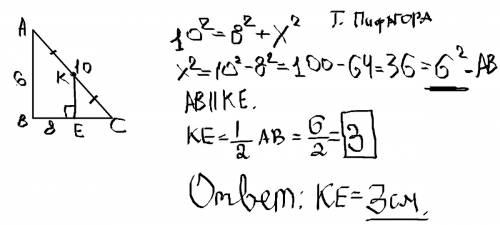 A
6
B
8
E
C
K
10
10² = 8² + x² Т. Пифагора
x² = 10² - 8² = 100 - 64 = 36 = 6² - AB
AB || KE.
KE = 1/2 AB = 6/2 = 3
Ответ: KE = 3 см.